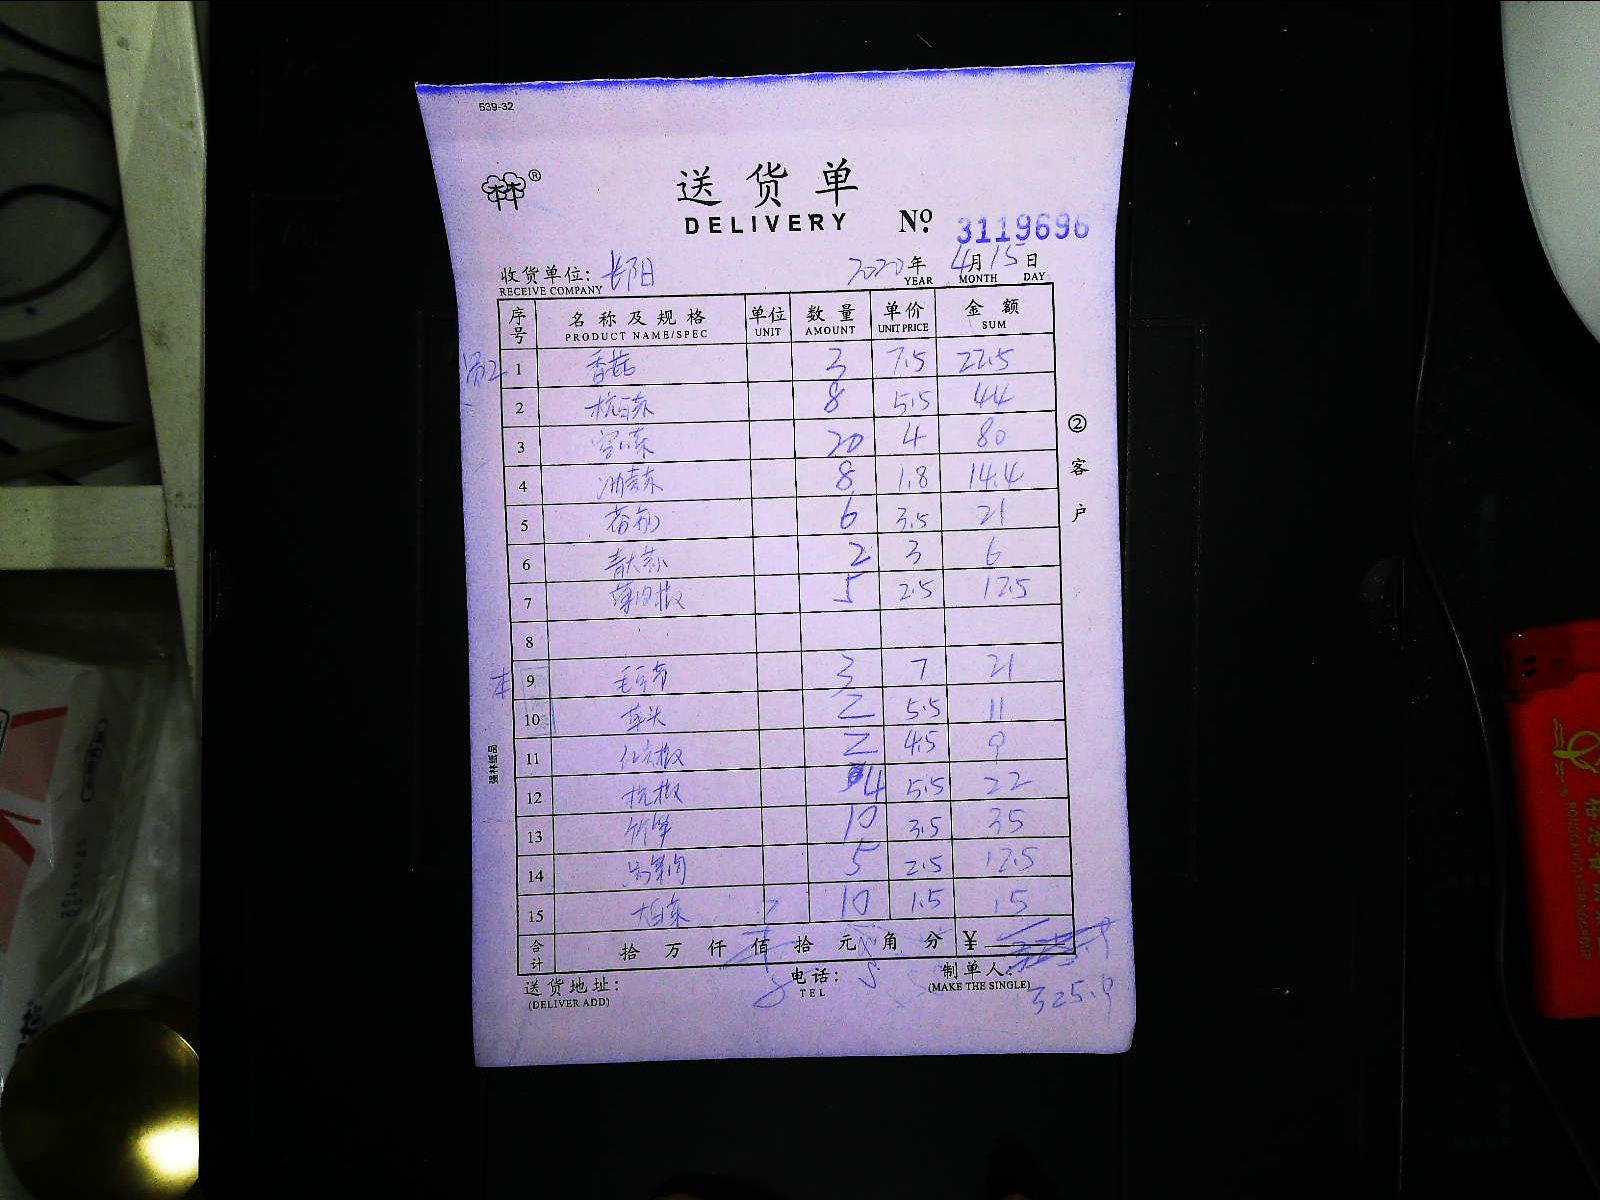 539-32
送货单
DELIVERY No. 3119696
收货单位: 长阳 2020年 4月 15日
RECEIVE COMPANY YEAR MONTH DAY
序号 名称及规格 单位 数量 单价 金额
PRODUCT NAME/SPEC UNIT AMOUNT UNIT PRICE SUM
1 香菇 3 7.5 22.5
2 杭白菜 8 5.5 44
3 空心菜 20 4 80
4 油麦菜 8 1.8 14.4
5 3.5 6 21
6 2 3 6
7 薄皮椒 5 2.5 12.5
8
9 毛豆节 3 7 21
10 草头 2 5.5 11
11 红尖椒 2 4.5 9
12 杭椒 4 5.5 22
13 竹笋 10 3.5 35
14 5 2.5 12.5
15 大白菜 10 1.5 15
合计 拾 万 仟 佰 拾 元 角 分 ¥
325.9
送货地址: 电话: 制单人:
(DELIVER ADD) TEL (MAKE THE SINGLE)
②客户
强林纸品